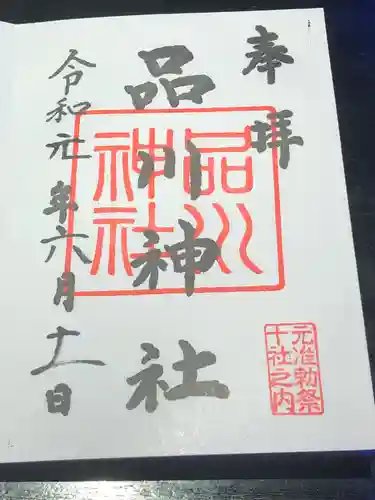 奉拝
品川神社
品川神社
元准勅祭
十社之内
令和元年六月十一日